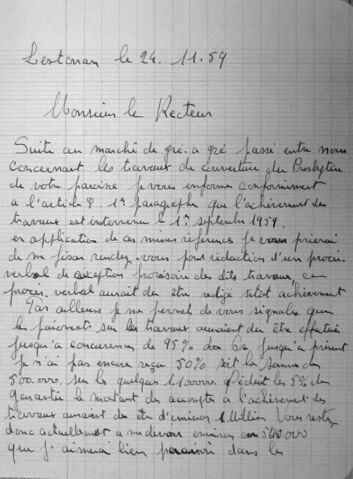 Lestonan le 24. 11. 59
Monsieur le Recteur
Suite au marché de gré. a gré passé entre nous
concernant les travaux de couverture du Presbytère
de votre paroisse je vous informe conformément
a l'article 8 1er paragraphe que l'achèvement des
travaux est intervenu le 1er septembre 1959.
en application de ces mêmes référence je vous prierai
de me fixer rendez vous pour rédaction d'un procès
verbal de réception provisoire des dits travaux, ce
procès. verbal aurait du être rédigé sitôt achèvement
Par ailleurs je me permet de vous signaler que
les paiements sur les travaux auraient du être effectué
jusqu'a concurrence de 95% des
jusqu'a présent
je n'ai pas encore reçu 50% soit la somme de
500.000. sur les quelques 1.100000. déduit les 5% de
garantie le montant des acomptes a l'achèvement des
travaux auraient du être d'environ 1 Million Vous restez
donc actuellement a me devoir environ
que j'aimerai bien percevoir dans les